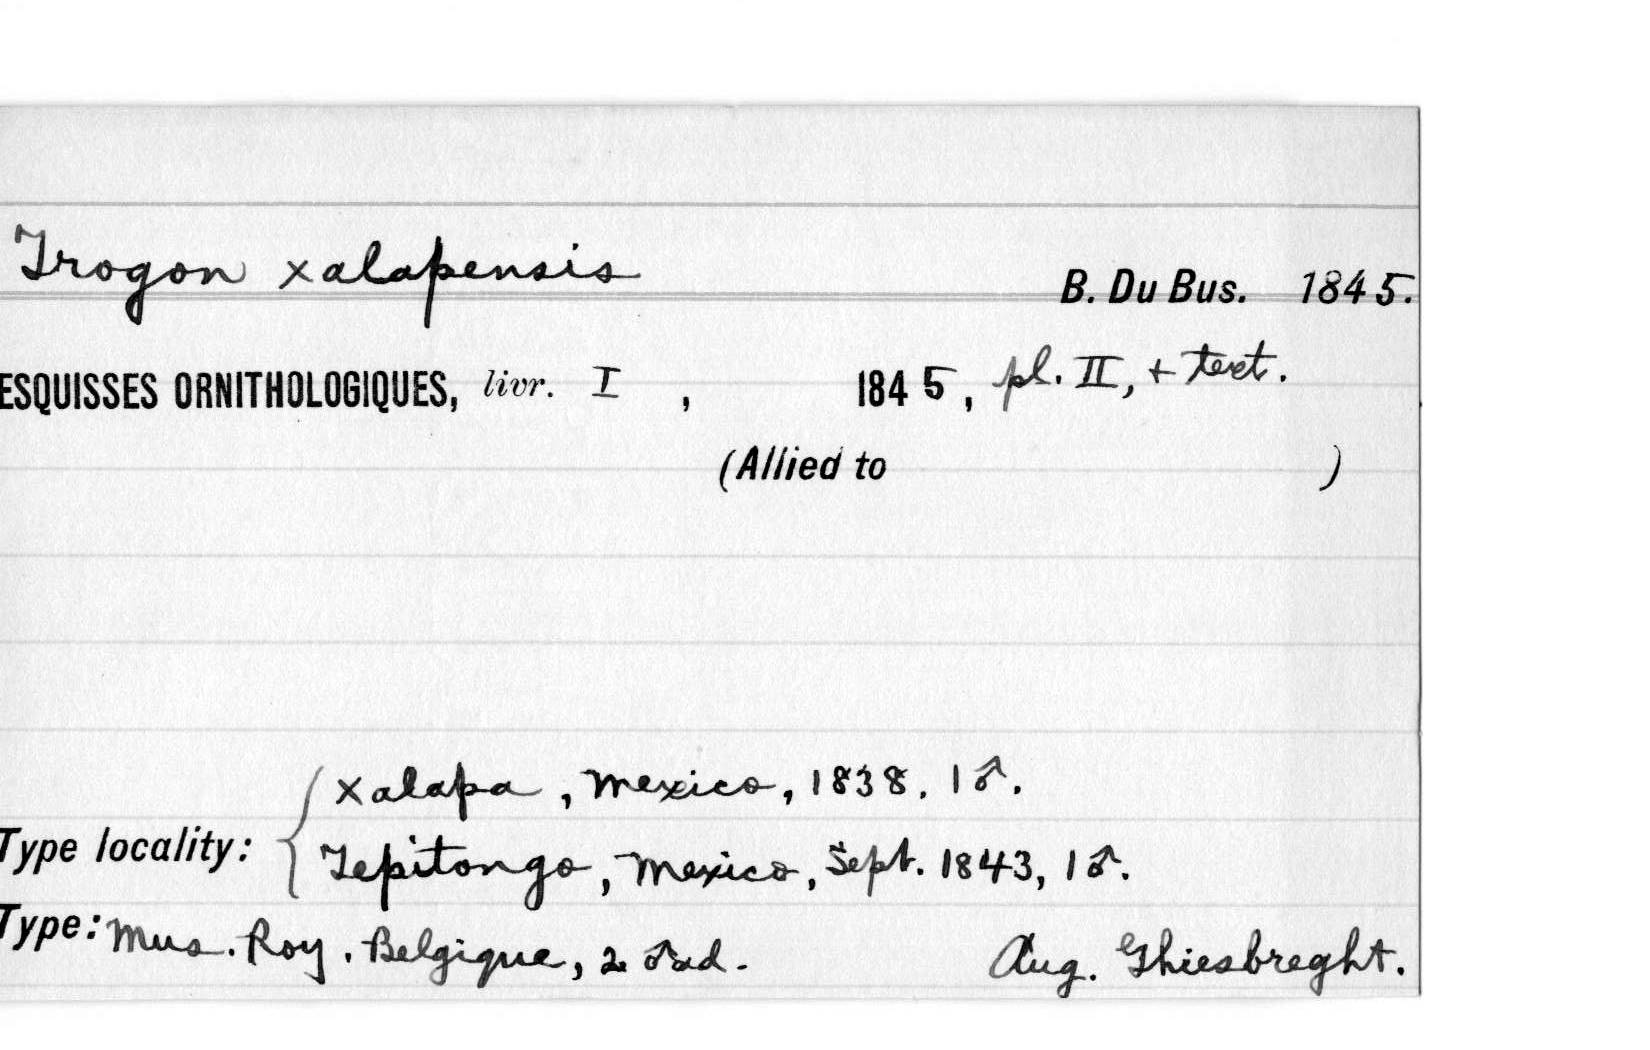 Trogon xalapensis
B. Du Bus. 1845.
ESQUISSES ORNITHOLOGIQUES, livr. I , 1845, pl. II, + text.
(Allied to )
Xalapa, Mexico, 1838. 1♂.
Type locality:
Tepitongo, Mexico, Sept. 1843, 1♂.
Type: Mus. Roy. Belgique, 2 ♂ ad. Aug. Ghiesbreght.